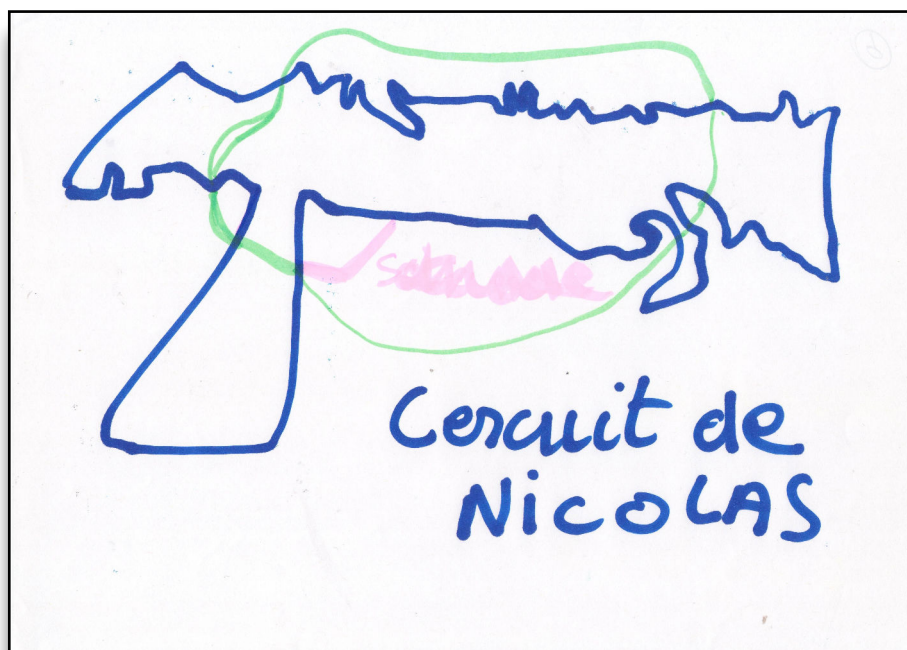 Cercuit de
NICOLAS